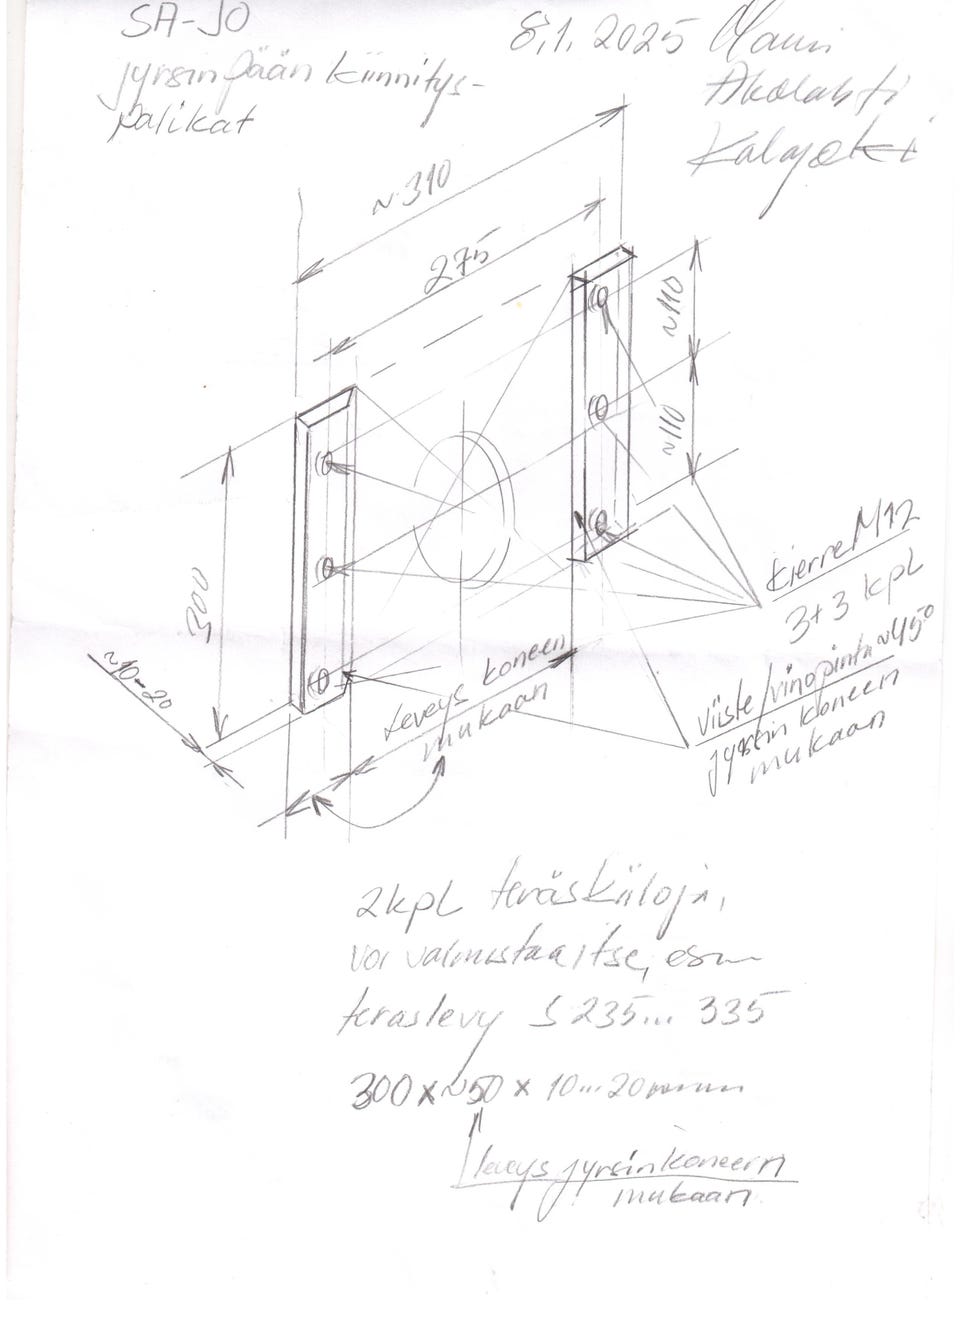 SA-JO
jyrsinpään kiinnitys-
palikat
8.1.2025 Mauri
Kalajoki
~310
275
~110
~110
300
~10-20
Leveys koneen
mukaan
Kierre M12
3+3 kpl
viiste/vinopinta ~45°
jyrsin koneen
mukaan
2kpl teräskiiloja,
voi valmistaa itse, esim
teräslevy S235... 335
300 x ~50 x 10...20mm
leveys jyrsinkoneen
mukaan